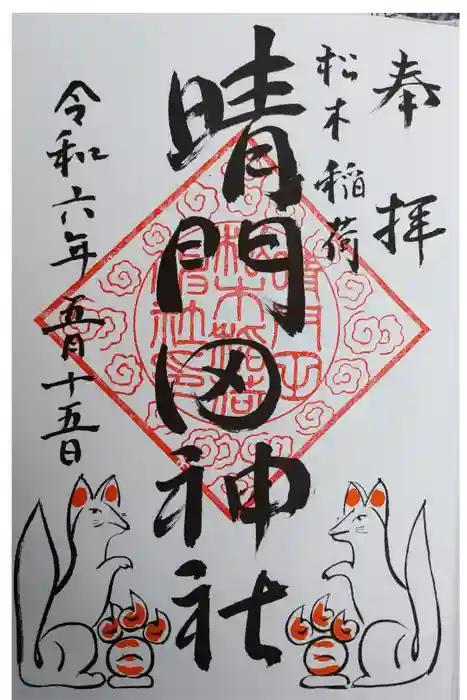 奉拝
松木稲荷
晴門田神社
令和六年五月十五日